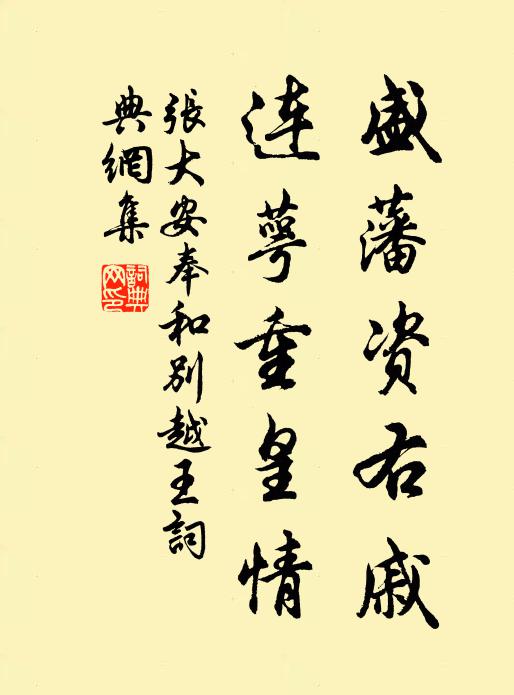 盛藩资右戚
连萼重皇情
張大安奉和別越王詞
典網集
詞典
网印